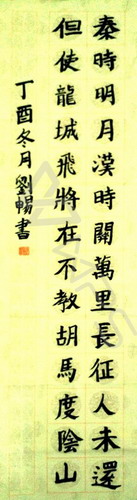 秦時明月漢時關萬里長征人未還
但使龍城飛將在不教胡馬度陰山
丁酉冬月劉暢書